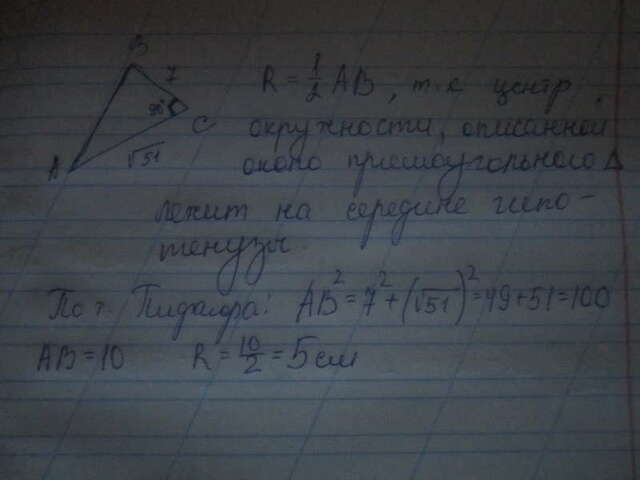 B
7
90°
C
A
√51
R = 1/2 AB, т.к центр
окружности, описанной
около прямоугольного Δ
лежит на середине гипо-
тенузы.
По т. Пифагора: AB² = 7² + (√51)² = 49 + 51 = 100
AB = 10 R = 10/2 = 5 см